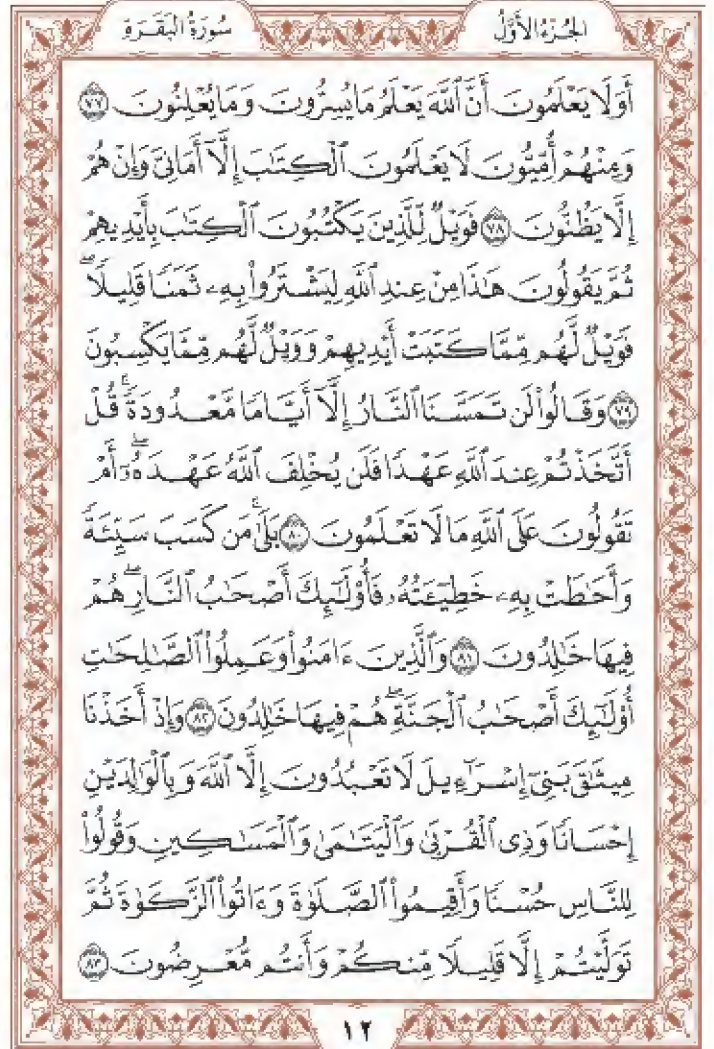 الجُزْءُ الأَوَّلُ سُورَةُ الْبَقَرَةِ
أَوَلَا يَعْلَمُونَ أَنَّ ٱللَّهَ يَعْلَمُ مَا يُسِرُّونَ وَمَا يُعْلِنُونَ ٧٧
وَمِنْهُمْ أُمِّيُّونَ لَا يَعْلَمُونَ ٱلْكِتَٰبَ إِلَّآ أَمَانِىَّ وَإِنْ هُمْ
إِلَّا يَظُنُّونَ ٧٨ فَوَيْلٌ لِّلَّذِينَ يَكْتُبُونَ ٱلْكِتَٰبَ بِأَيْدِيهِمْ
ثُمَّ يَقُولُونَ هَٰذَا مِنْ عِندِ ٱللَّهِ لِيَشْتَرُوا۟ بِهِۦ ثَمَنًا قَلِيلًا ۖ
فَوَيْلٌ لَّهُم مِّمَّا كَتَبَتْ أَيْدِيهِمْ وَوَيْلٌ لَّهُم مِّمَّا يَكْسِبُونَ
٧٩ وَقَالُوا۟ لَن تَمَسَّنَا ٱلنَّارُ إِلَّآ أَيَّامًا مَّعْدُودَةً ۚ قُلْ
أَتَّخَذْتُمْ عِندَ ٱللَّهِ عَهْدًا فَلَن يُخْلِفَ ٱللَّهُ عَهْدَهُۥٓ ۖ أَمْ
تَقُولُونَ عَلَى ٱللَّهِ مَا لَا تَعْلَمُونَ ٨٠ بَلَىٰ ۚ مَن كَسَبَ سَيِّئَةً
وَأَحَٰطَتْ بِهِۦ خَطِيٓـَٔتُهُۥ فَأُو۟لَٰٓئِكَ أَصْحَٰبُ ٱلنَّارِ ۖ هُمْ
فِيهَا خَٰلِدُونَ ٨١ وَٱلَّذِينَ ءَامَنُوا۟ وَعَمِلُوا۟ ٱلصَّٰلِحَٰتِ
أُو۟لَٰٓئِكَ أَصْحَٰبُ ٱلْجَنَّةِ ۖ هُمْ فِيهَا خَٰلِدُونَ ٨٢ وَإِذْ أَخَذْنَا
مِيثَٰقَ بَنِىٓ إِسْرَٰٓءِيلَ لَا تَعْبُدُونَ إِلَّا ٱللَّهَ وَبِٱلْوَٰلِدَيْنِ
إِحْسَانًا وَذِى ٱلْقُرْبَىٰ وَٱلْيَتَٰمَىٰ وَٱلْمَسَٰكِينِ وَقُولُوا۟
لِلنَّاسِ حُسْنًا وَأَقِيمُوا۟ ٱلصَّلَوٰةَ وَءَاتُوا۟ ٱلزَّكَوٰةَ ثُمَّ
تَوَلَّيْتُمْ إِلَّا قَلِيلًا مِّنكُمْ وَأَنتُم مُّعْرِضُونَ ٨٣
١٢